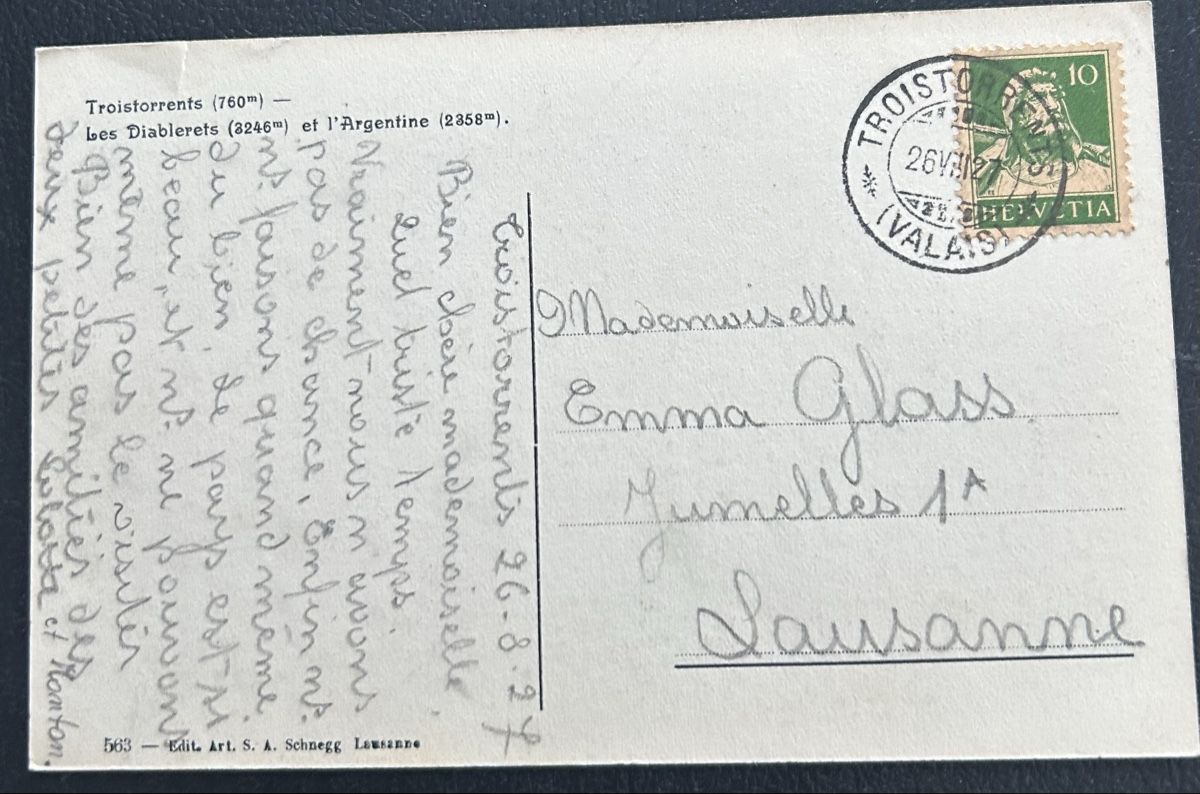 Troistorrents (760m) —
Les Diablerets (3246m) et l'Argentine (2358m).
Troistorrents 26-8-27
Bien chère mademoiselle,
Quel triste temps.
Vraiment nous n'avons
pas de chance, Enfin ns.
ns. faisons quand même
du bien. Le pays est si
beau, et ns. ne pouvons
même pas le visiter
Bien des amitiés des
deux petites Lolotte et
10
HELVETIA
TROISTORRENTS
26 VIII 27
(VALAIS)
Mademoiselle
Emma Glass
Jumelles 1A
Lausanne
563 — Edit. Art. S. A. Schnegg Lausanne